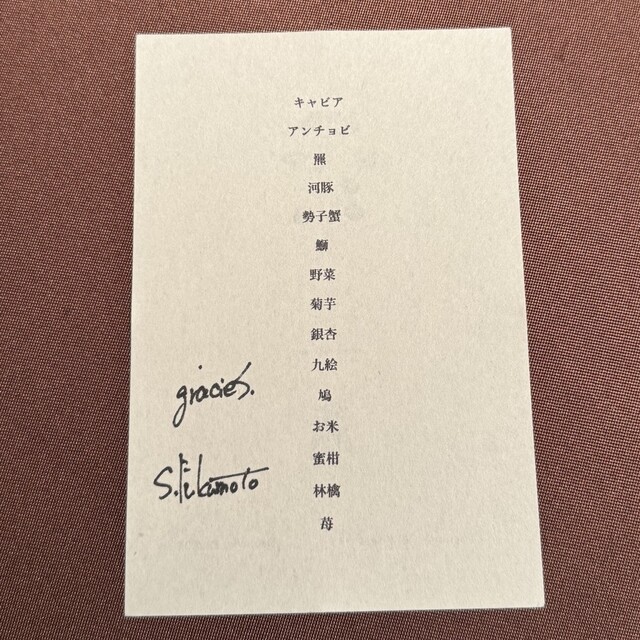 キャビア
アンチョビ
羆
河豚
勢子蟹
鰤
野菜
菊芋
銀杏
九絵
鳩
お米
蜜柑
林檎
苺
gracies.